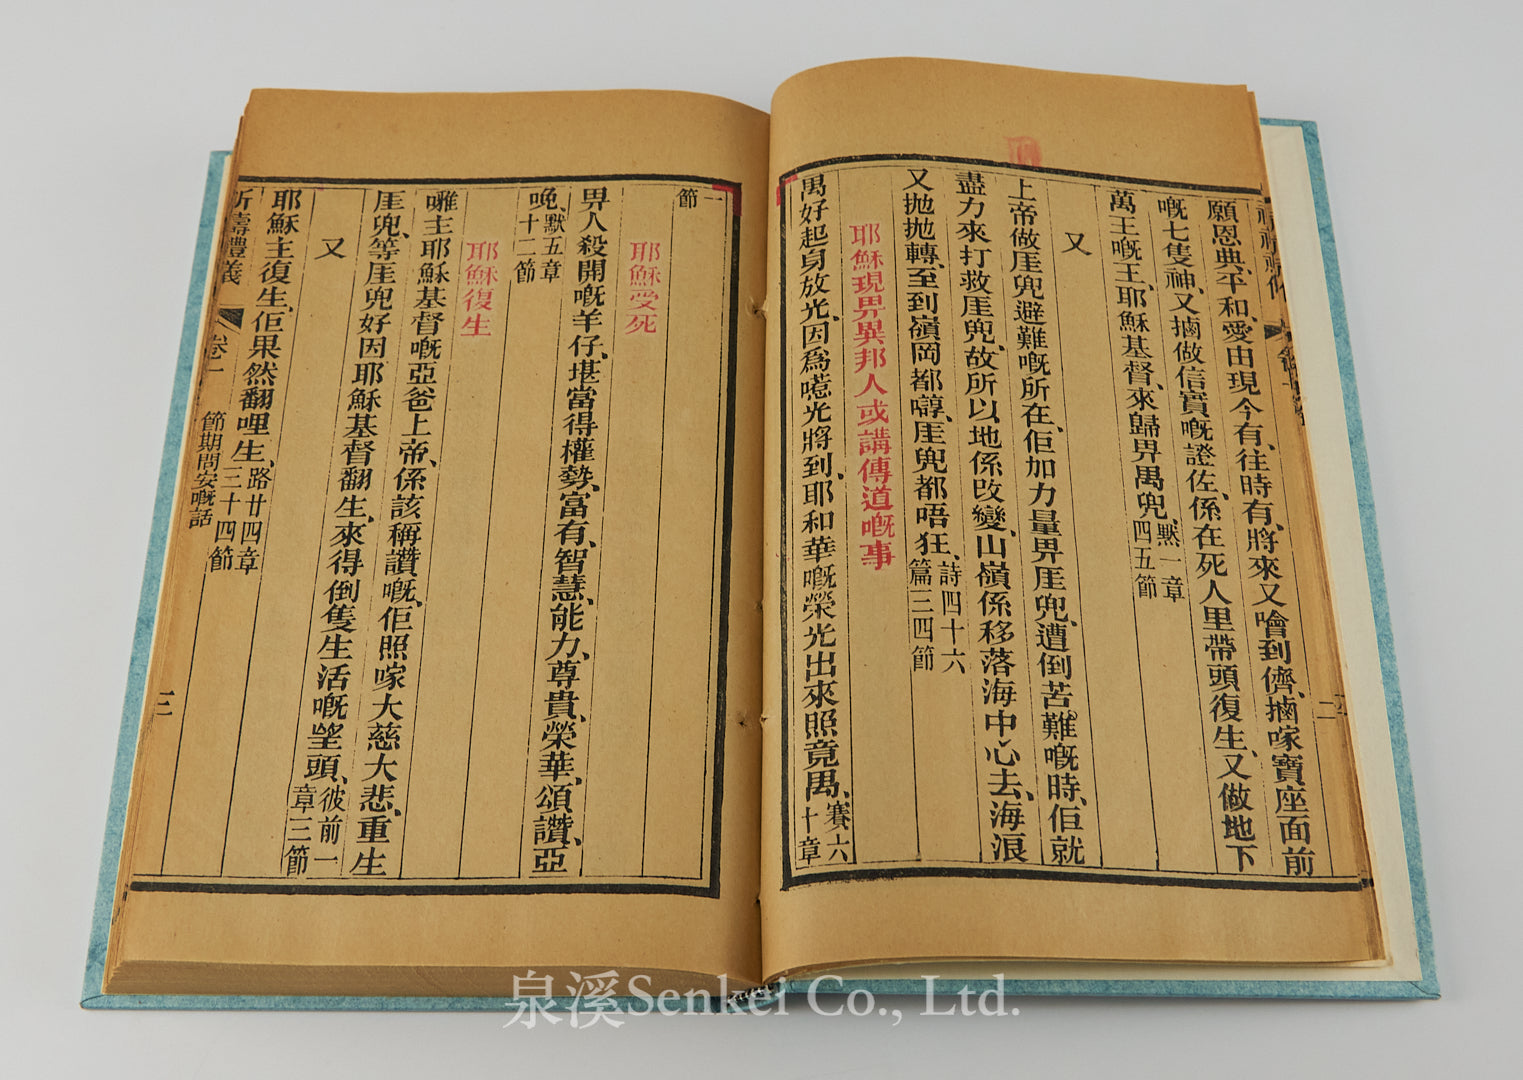 願恩典、平和、愛由現今有、往時有、將來又噲到儕、擿㗎寶座面前
嘅七隻神、又擿做信實嘅證佐、係在死人里帶頭復生、又做地下
萬王嘅王、耶穌基督、來歸畀禺兜、默一章
四五節
又
上帝做𠊎兜避難嘅所在、佢加力量畀𠊎兜、遭倒苦難嘅時、佢就
盡力來打救𠊎兜、故所以地係改變、山嶺係移落海中心去、海浪
又拋拋轉、至到嶺岡都𠹌、𠊎兜都唔狂、詩四十六
篇三四節
耶穌現畀異邦人或講傳道嘅事
禺好起身放光、因爲㗒光將到、耶和華嘅榮光出來照竟禺、賽六
十章
一
節
耶穌受死
畀人殺開嘅羊仔、堪當得權勢、富有、智慧、能力、尊貴、榮華、頌讚、亞
㖠、默五章
十二節
耶穌復生
㘔主耶穌基督嘅亞爸上帝、係該稱讚嘅、佢照㗎大慈大悲、重生
𠊎兜、等𠊎兜好因耶穌基督翻生、來得倒隻生活嘅望頭、彼前一
章三節
又
耶穌主復生、佢果然翻哩生、路廿四章
三十四節
祈禱禮儀 卷一 節期問安嘅話 三
二
泉溪Senkei Co., Ltd.